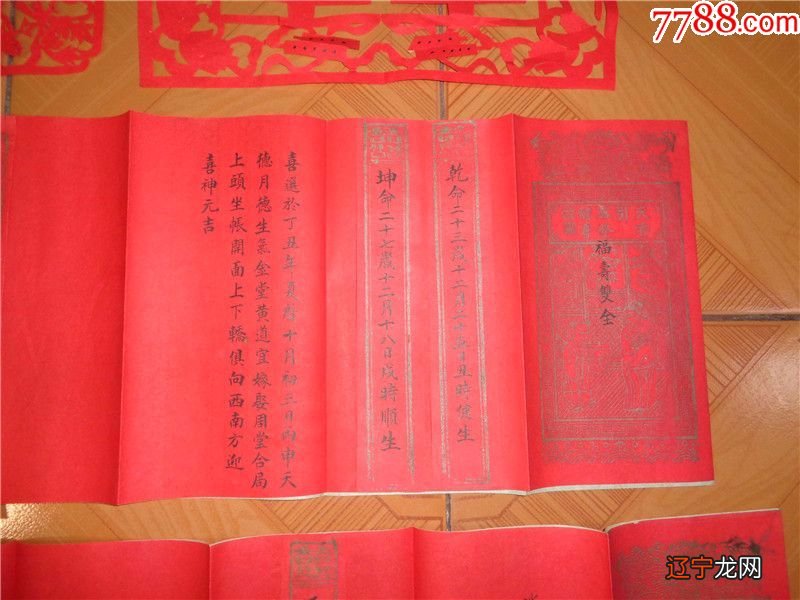 7788.com
福壽雙全
乾命二十三歲十二月二十五日丑時健生
坤命二十七歲十二月十八日戌時順生
喜選於丁丑年夏曆十月初二日丙申天
德月德生氣金堂黄道宜嫁娶周堂合局
上頭坐帳開面上下轎俱向西南方迎
喜神元吉
辽宁龙网